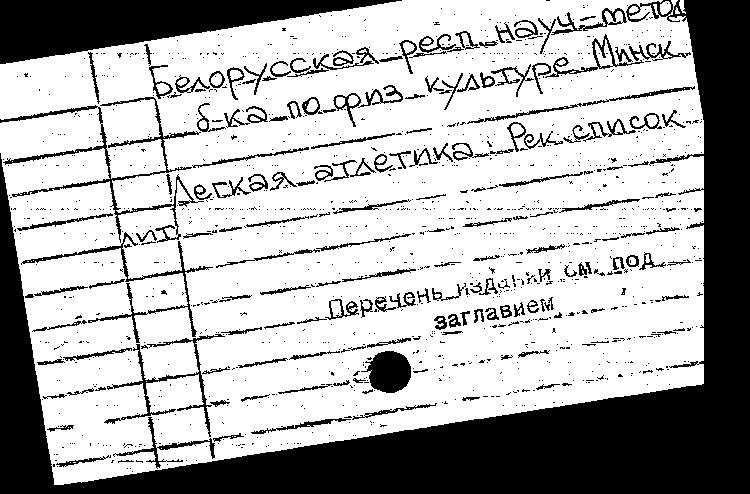 Белорусская респ. науч-метод
б-ка по физ. культуре. Минск
Легкая атлетика: Рек. список
лит.
Перечень издании см. под
заглавием